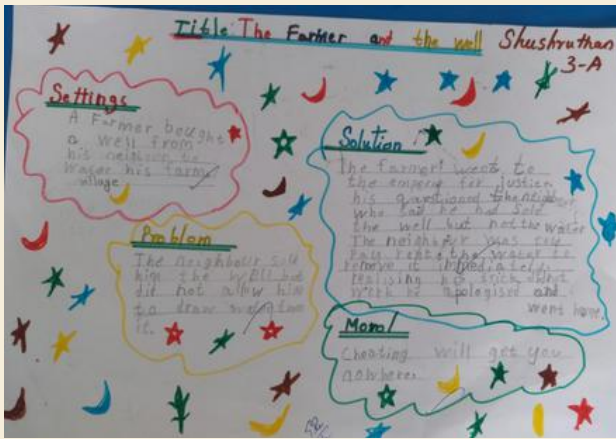 Title: The Farmer and the well
Shushruthan
3-A
Settings
A Farmer bought
a well from
his neighbor to
water his farm
village
Problem
The neighbour sold
him the well but
did not allow him
to draw water from
it.
Solution
The farmer went to
the emperor for justice
his questioned the neighbour
who said he had sold
the well but not the water
The neighbour was told
rent the water or
remove it immediately
realising his trick didn't
work he apologised and
went home.
Moral
Cheating will get you
nowhere.